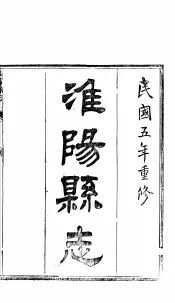 民國五年重修
淮陽縣志